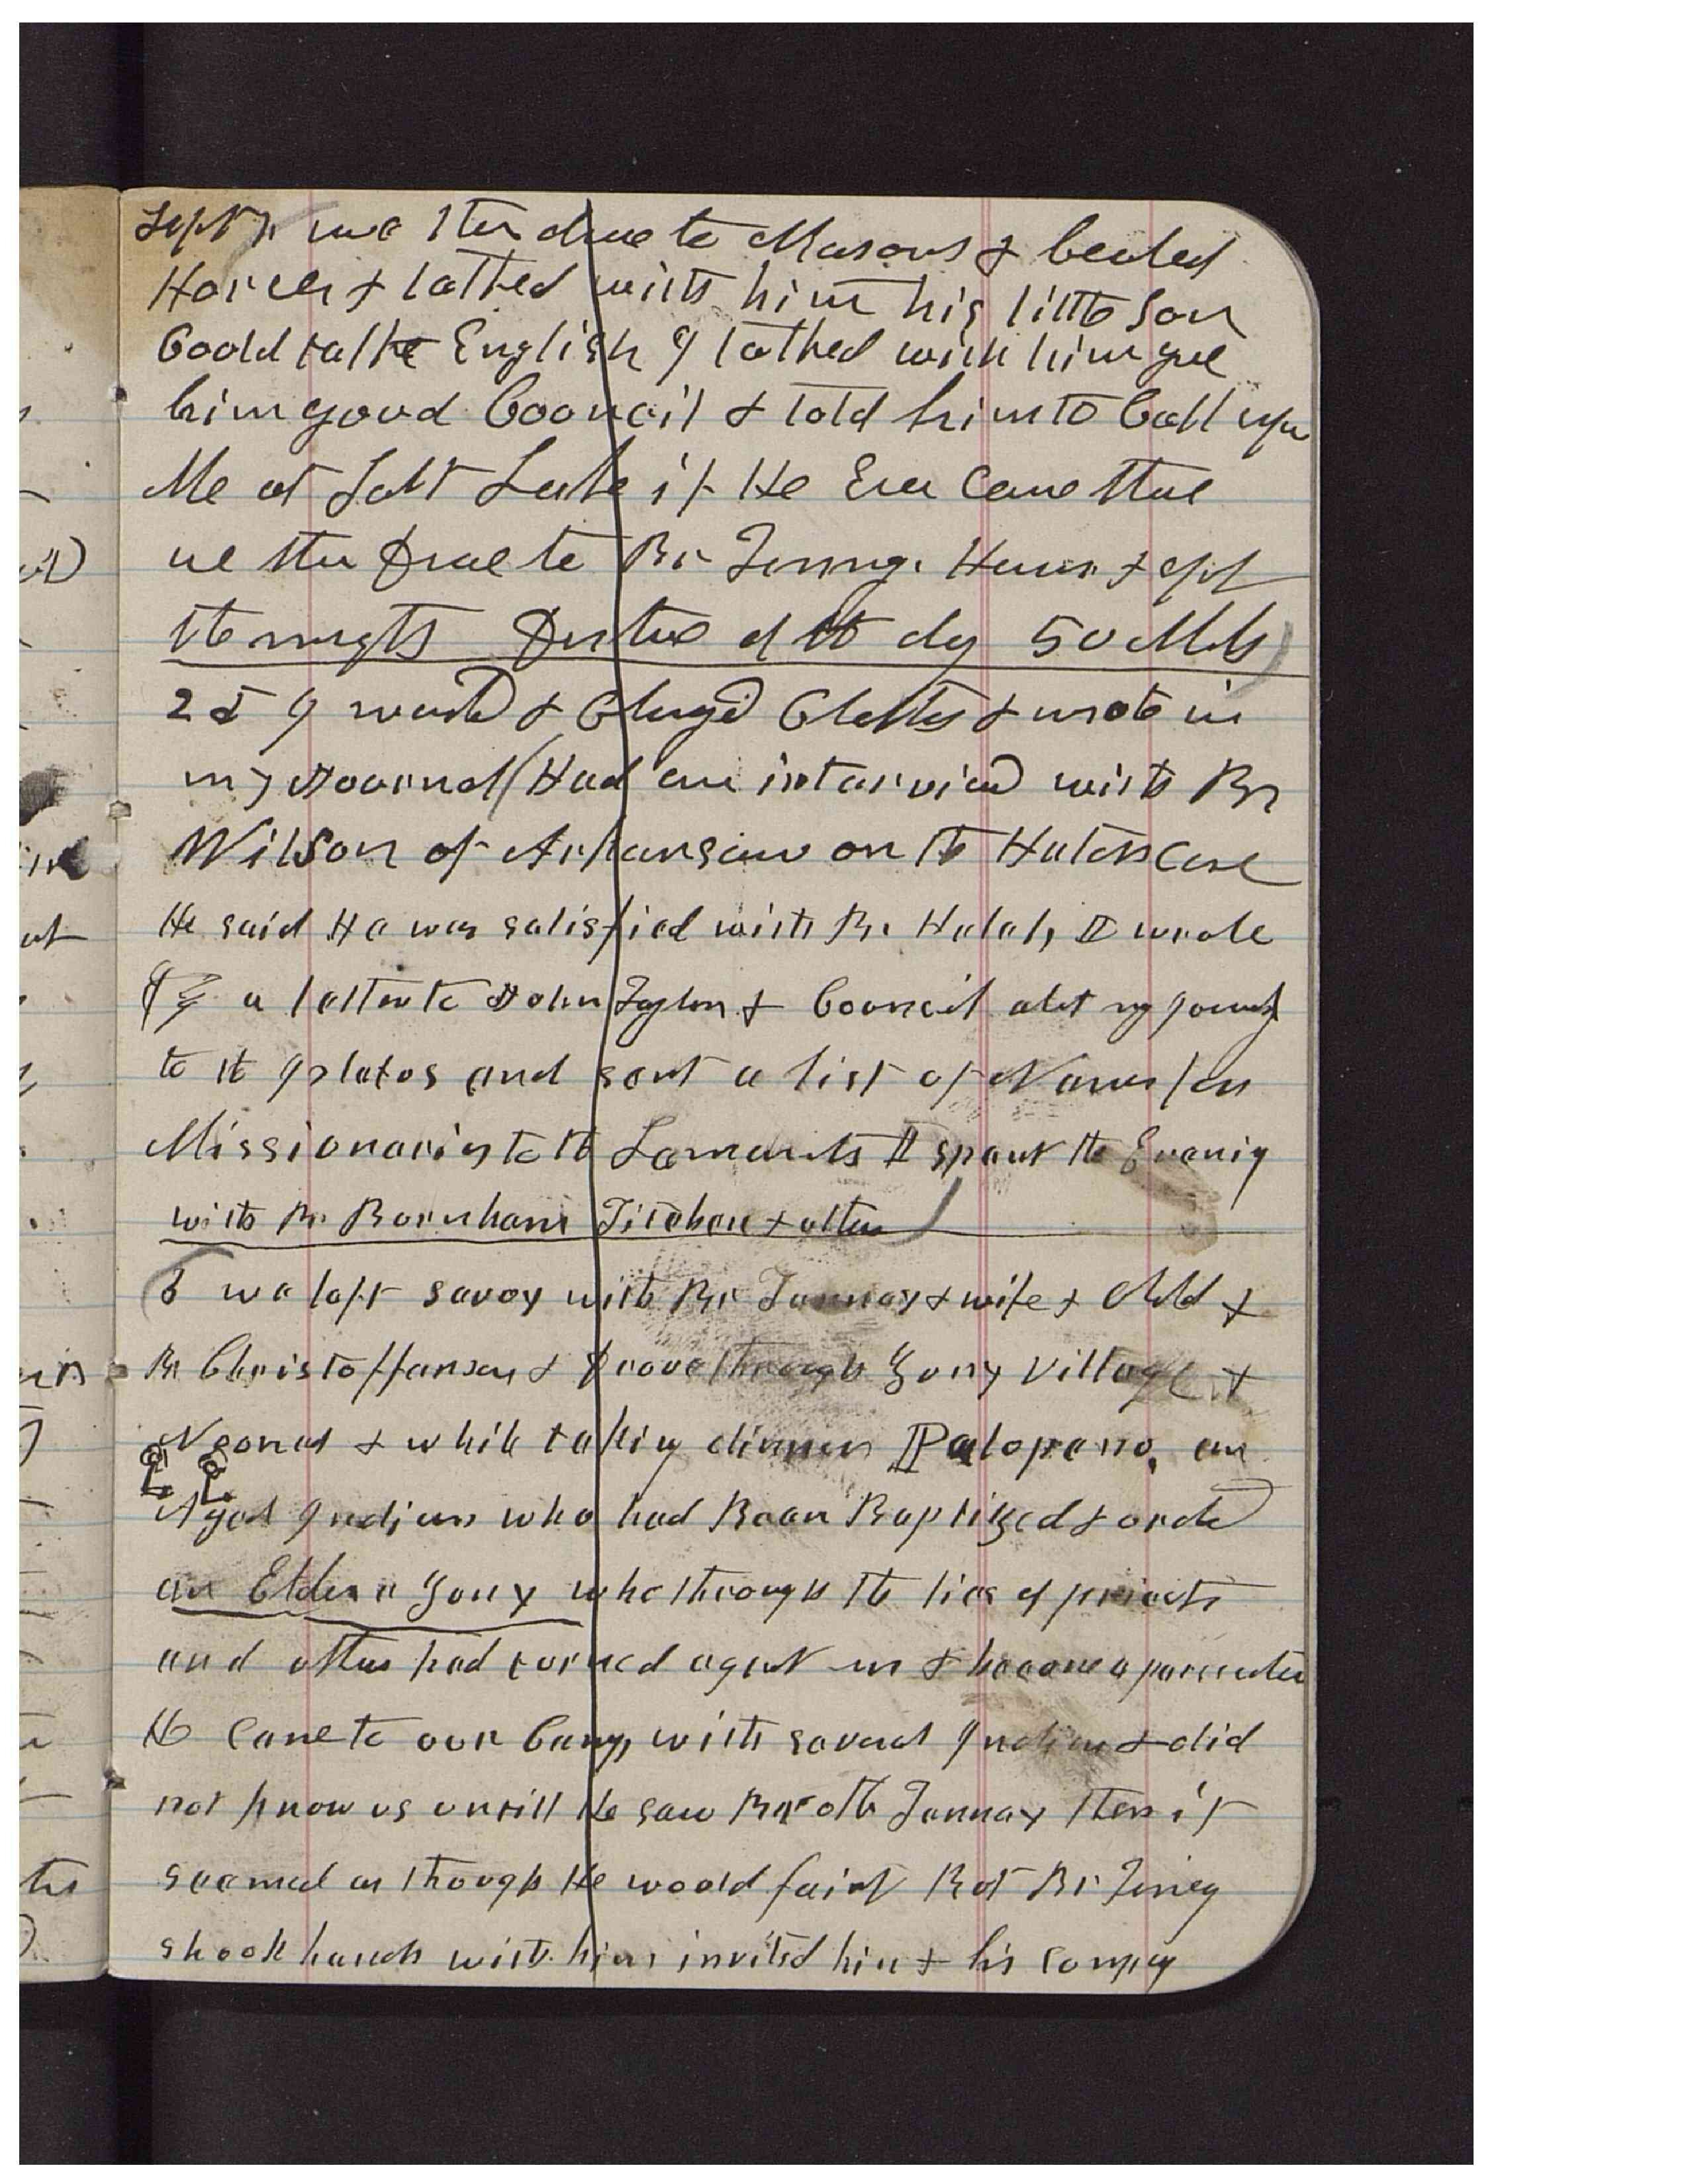 Sept we then drove to Masons & baited
Horses & talked with him his little son
Could talke English I talked with him gve
him good Council & told him to Call upn
Me at Salt Lake if He Ever Came thare
we then drove to Br Tenny. House & spt
the night Distane of the dy 50 Mils
2 & I washd & Changd Clothes & wrote in
my Journal (Had an intarview with Br
Wilson of Arkansaw on the Hatch Case
He said He was satisfied with Br. Hatch, I wrote
a letter to John Taylor & Council abt my journy
to the Islatas and sent a list of Names for
Missionaris to the Lamanits I spent the Evenig
with Br Bornham Tietjen & others
3 we left Savoy with Br Tanney & wife & Child &
Br Christoffersen & Drove through Zuny Village &
& while taking dinner Palopano, an
Aged Indian who had Been Baptized & ordd
an Elder a Zuny who through the lies of priests
and others had turned against us & became a persecuter
He came to our Camp, with several Indians & did
not know us untill He saw Brother Tanney then it
seemed as though He woold faint But Br Tinney
shook hands with him invited him & his compny